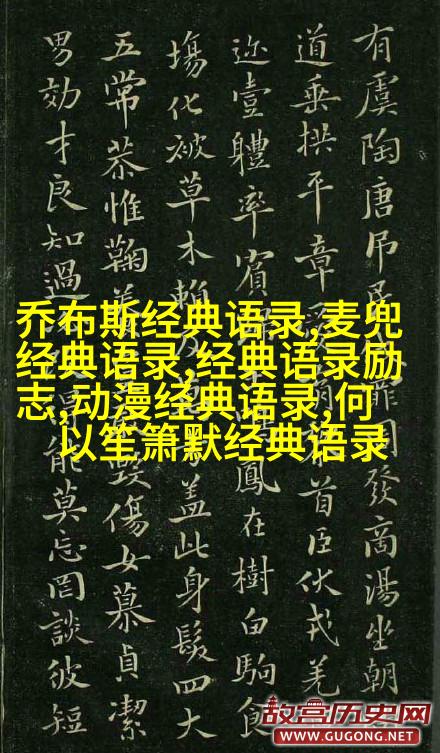 有虞陶唐吊民周發商湯坐朝
道垂拱平章首臣伏戎羌
迩壹體率賓鳳在樹白駒食
場化被草木賴及蓋此身髮四大
五常恭惟鞠毀傷女慕貞潔
男効才良知過得能莫忘罔談彼短
乔布斯经典语录,麦兜
经典语录,经典语录励
志,动漫经典语录,何
以笙箫默经典语录
故宫历史网
WWW.GUGONG.NET